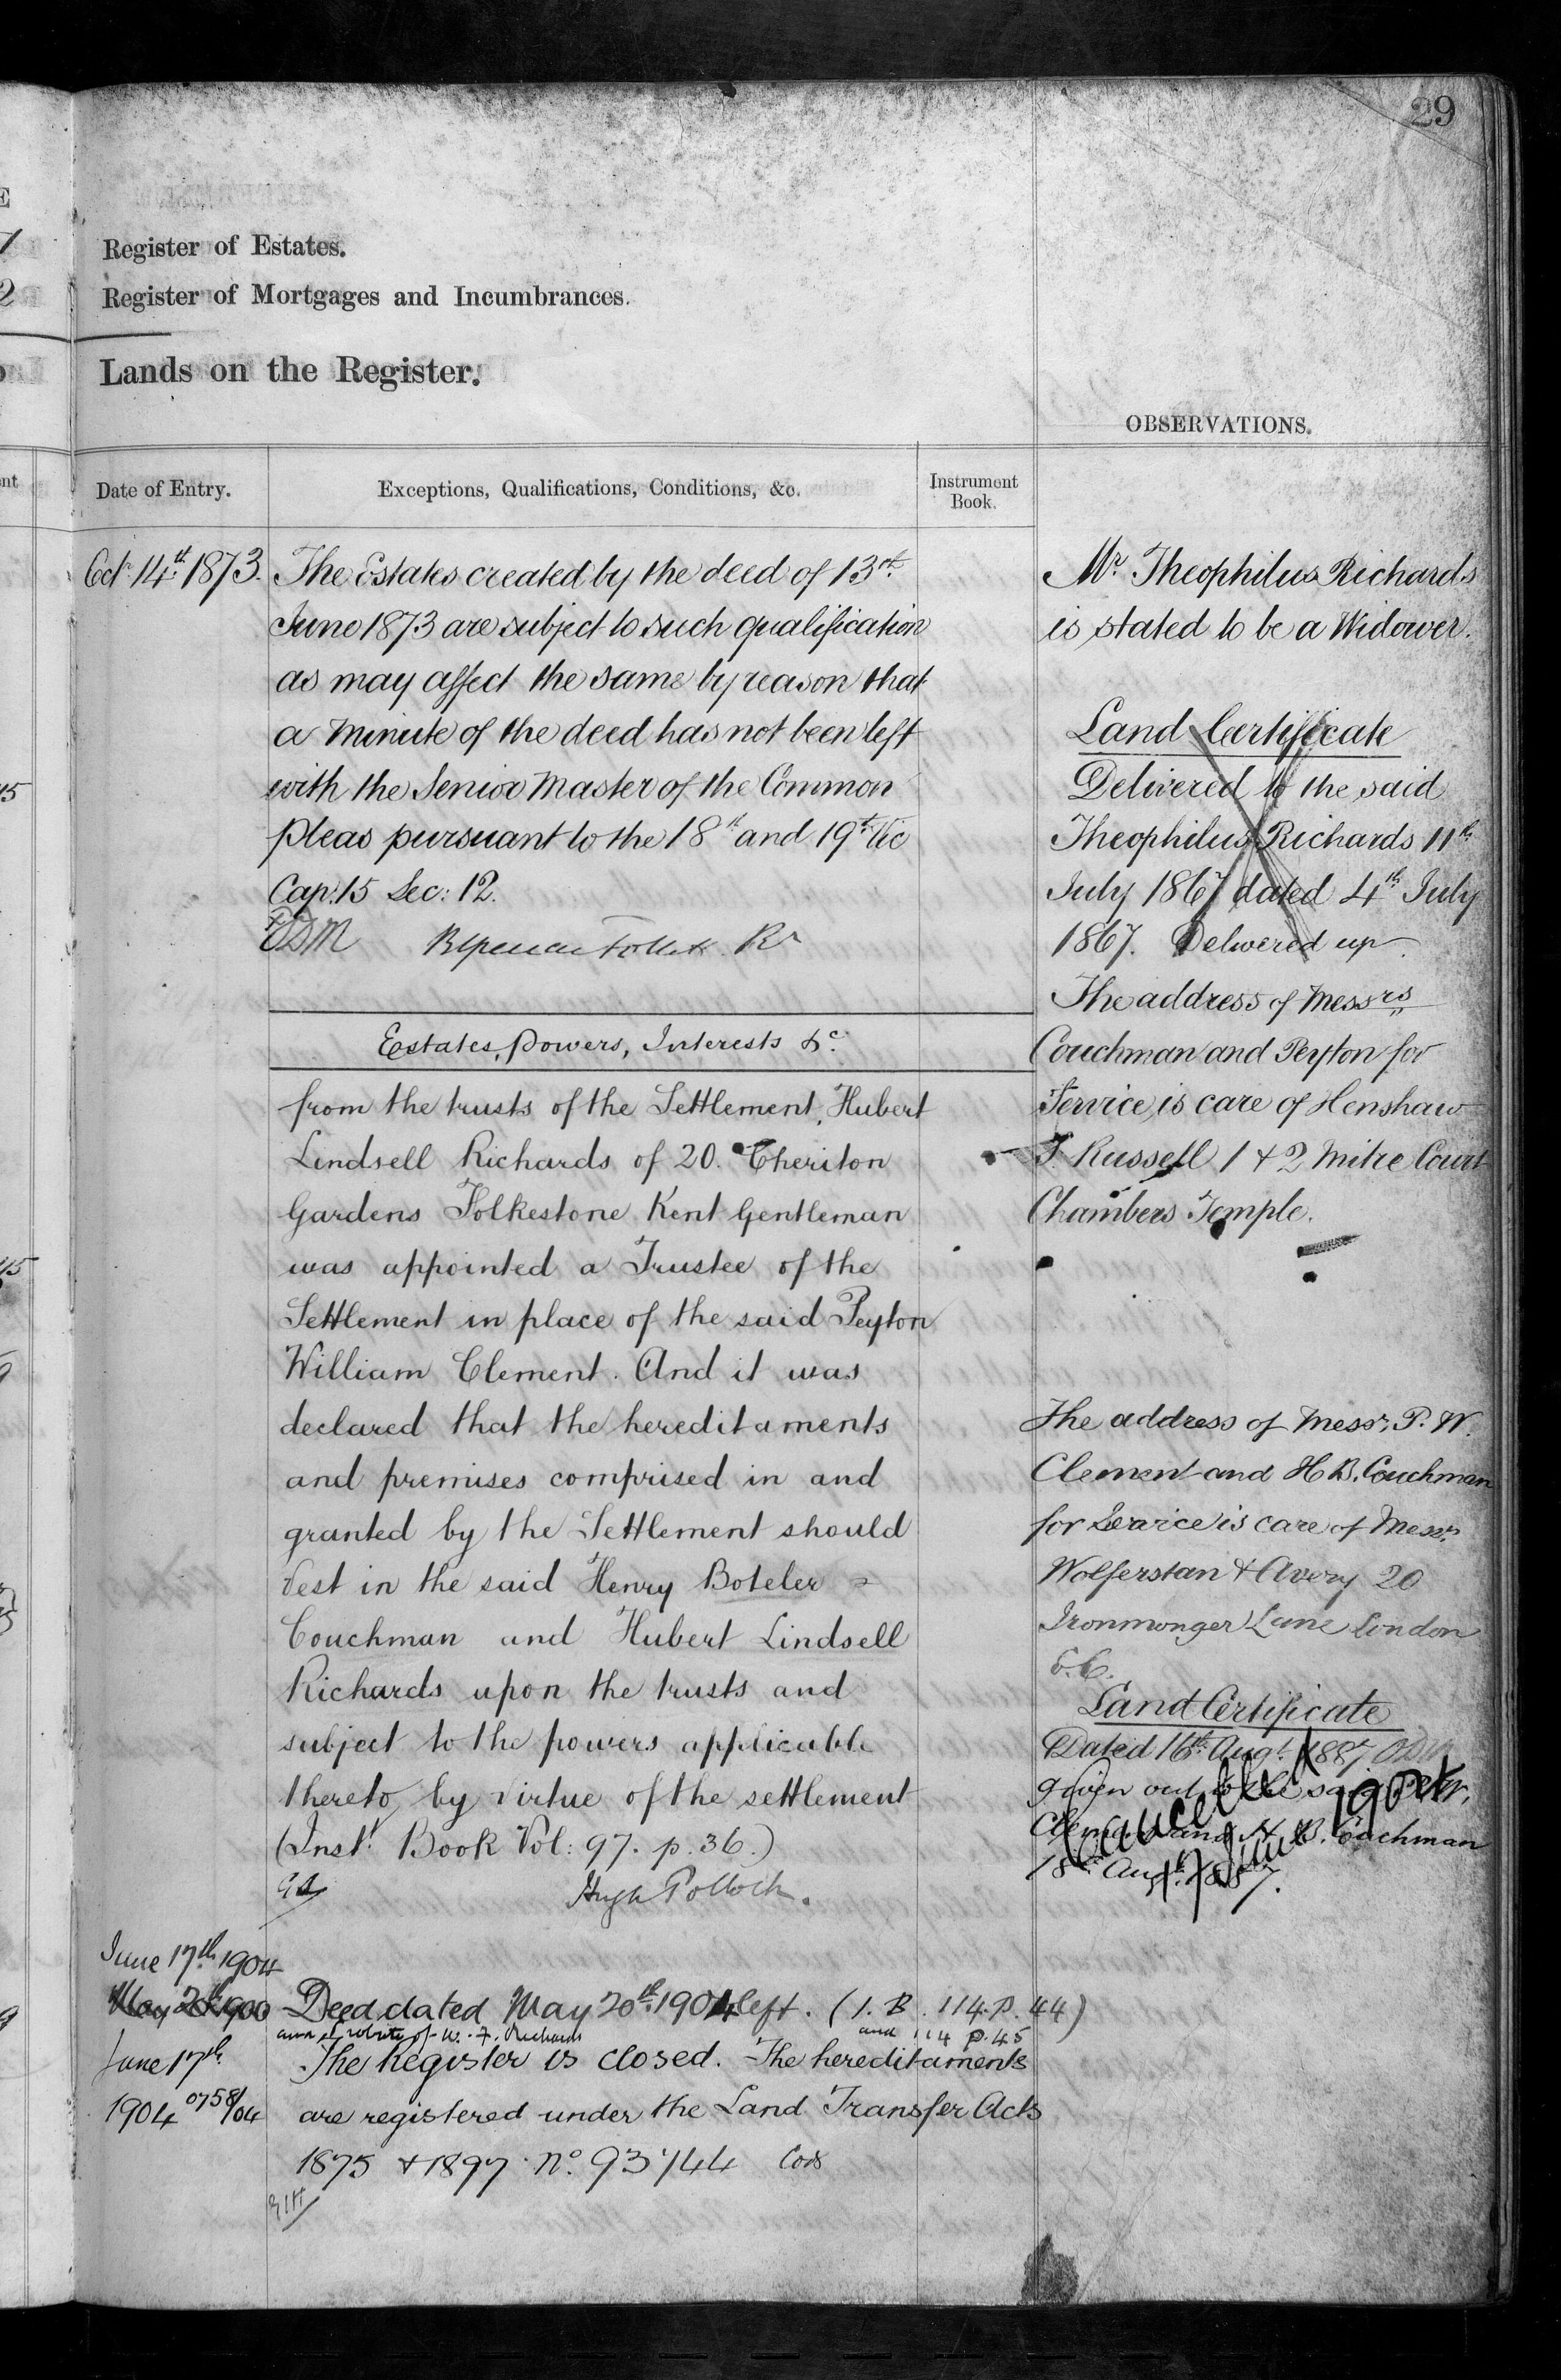 29
Register of Estates.
Register of Mortgages and Incumbrances.
Lands on the Register.
OBSERVATIONS.
Date of Entry.
Exceptions, Qualifications, Conditions, &c.
Instrument Book.
Oct. 14th 1873.
The Estates created by the deed of 13th
June 1873 are subject to such qualification
as may affect the same by reason that
a Minute of the deed has not been left
with the Senior Master of the Common
Pleas pursuant to the 18th and 19th Vic
Cap: 15 Sec: 12.
ODM Follett Rr
Estates, Powers, Interests &c.
from the trusts of the Settlement, Hubert
Lindsell Richards of 20. Cheriton
Gardens Folkestone Kent Gentleman
was appointed a Trustee of the
Settlement in place of the said Peyton
William Clement. And it was
declared that the hereditaments
and premises comprised in and
granted by the Settlement should
vest in the said Henry Boteler
Couchman and Hubert Lindsell
Richards upon the trusts and
subject to the powers applicable
thereto by virtue of the settlement
(Inst. Book Vol: 97. p. 36.)
Hugh Pollock.
June 17th 1904
May 20th 1900
Deed dated May 20th 1904 left. (I. B. 114. p. 44)
of W. F. Richards and 114 p. 45
June 17th
1904 0758/04
The Register is closed. The hereditaments
are registered under the Land Transfer Acts
1875 & 1897 No. 93744
Mr. Theophilus Richards
is stated to be a Widower.
Land Certificate
Delivered to the said
Theophilus Richards 11th
July 1867 dated 4th July
1867. Delivered up
The address of Messrs
Couchman and Peyton for
Service is care of Henshaw
S. Russell 1 & 2 Mitre Court
Chambers Temple.
The address of Messrs. P. W.
Clement and H B. Couchman
for Service is care of Messrs.
Wolferstan & Avery 20
Ironmonger Lane London
E.C.
Land Certificate
Dated 16th Augt. 1887 ODM
given out to the said P. W.
Clement and H. B. Couchman
18th Augt. 1887.
Cancelled
17 June 1904